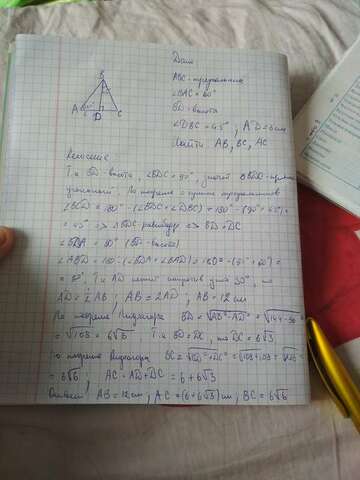 Дано
ABC - треугольник
∠BAC = 60°
BD - высота
∠DBC = 45°; AD = 6 см
Найти AB, BC, AC
B
A 60° D C
Решение
Т.к BD - высота, ∠BDC = 90°, значит △BDC - прямо-
угольный. По теореме о сумме треугольника
∠BCD = 180° - (∠BDC + ∠DBC) = 180° - (90° + 45°) =
= 45° => △BDC равнобедр => BD = DC
∠BDA = 90° (BD - высота)
∠ABD = 180 - (∠BDA + ∠BAD) = 180° - (90° + 60°) =
= 30°. Т.к AD лежит напротив угла 30°, то
AD = ½ AB; AB = 2AD; AB = 12 см
По теореме Пифагора BD = √AB² - AD² = √144 - 36 =
= √108 = 6√3 Т.к BD = DC, то DC = 6√3
По теореме Пифагора BC = √BD² + DC² = √108 + 108 = √216 =
= 6√6; AC = AD + DC = 6 + 6√3
Ответ: AB = 12 см; AC = (6 + 6√3) см; BC = 6√6